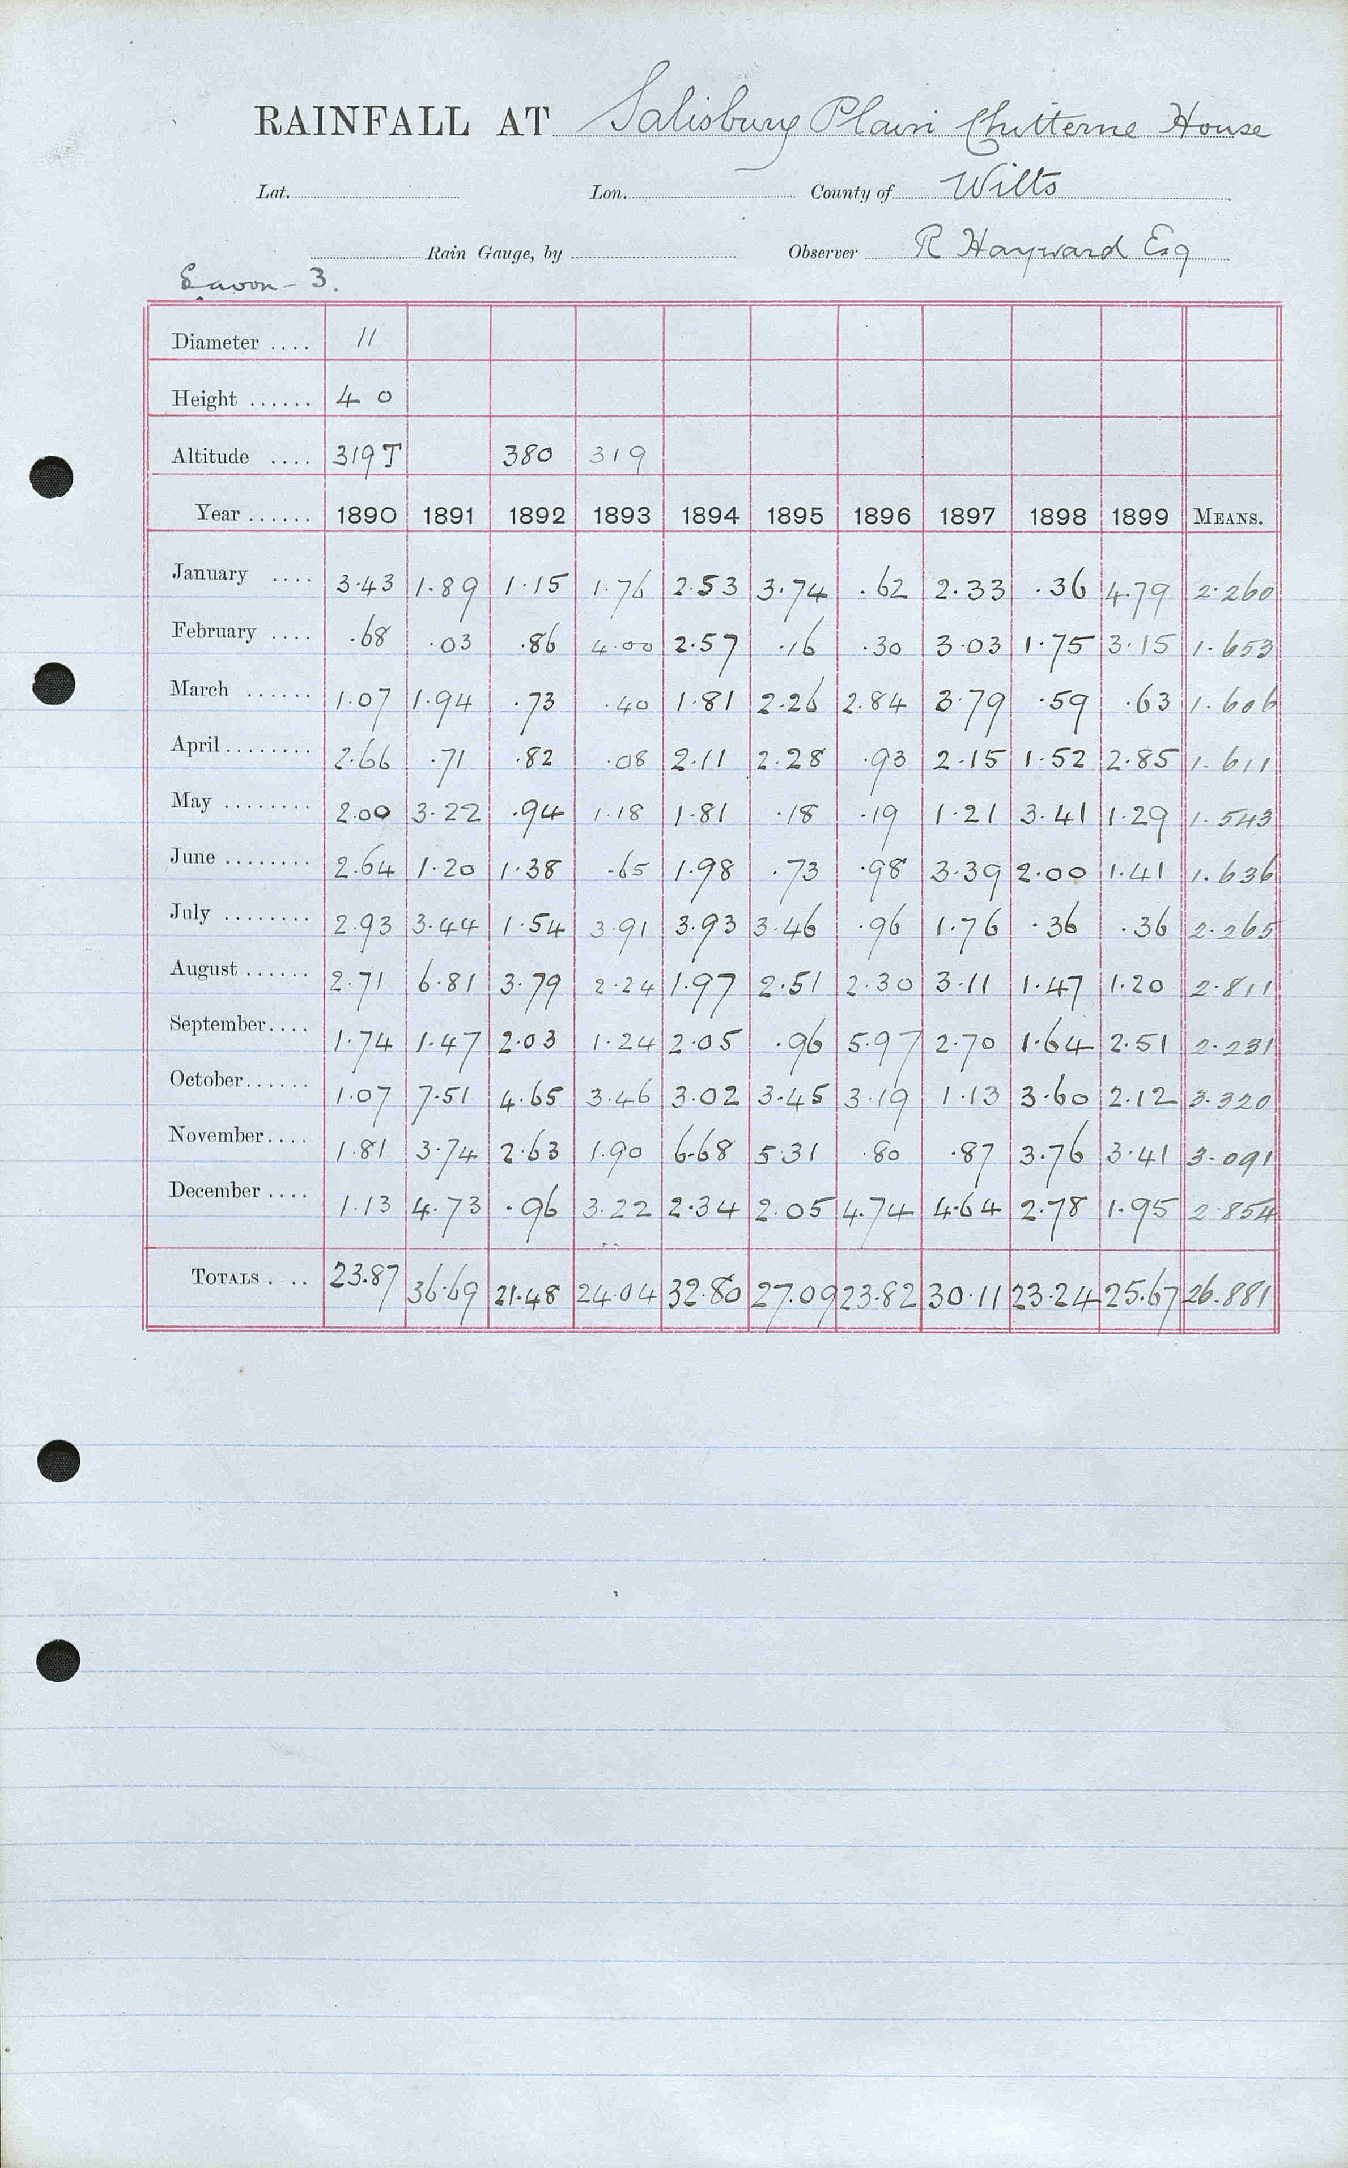 RAINFALL AT Salisbury Plain Chitterne House
Lat. Lon. County of Wilts
Rain Gauge, by Observer R Hayward Esq
3.
Diameter .... 11
Height ...... 4 0
Altitude .... 319 T 380 319
Year ...... 1890 1891 1892 1893 1894 1895 1896 1897 1898 1899 MEANS.
January .... 3.43 1.89 1.15 1.76 2.53 3.74 .62 2.33 .36 4.79 2.260
February .... .68 .03 .86 4.00 2.57 .16 .30 3.03 1.75 3.15 1.653
March ...... 1.07 1.94 .73 .40 1.81 2.26 2.84 3.79 .59 .63 1.606
April ........ 2.66 .71 .82 .08 2.11 2.28 .93 2.15 1.52 2.85 1.611
May ........ 2.00 3.22 .94 1.18 1.81 .18 .19 1.21 3.41 1.29 1.543
June ........ 2.64 1.20 1.38 .65 1.98 .73 .98 3.39 2.00 1.41 1.636
July ........ 2.93 3.44 1.54 3.91 3.93 3.46 .96 1.76 .36 .36 2.265
August ...... 2.71 6.81 3.79 2.24 1.97 2.51 2.30 3.11 1.47 1.20 2.811
September.... 1.74 1.47 2.03 1.24 2.05 .96 5.97 2.70 1.64 2.51 2.231
October...... 1.07 7.51 4.65 3.46 3.02 3.45 3.19 1.13 3.60 2.12 3.320
November.... 1.81 3.74 2.63 1.90 6.68 5.31 .80 .87 3.76 3.41 3.091
December .... 1.13 4.73 .96 3.22 2.34 2.05 4.74 4.64 2.78 1.95 2.854
TOTALS . .. 23.87 36.69 21.48 24.04 32.80 27.09 23.82 30.11 23.24 25.67 26.881